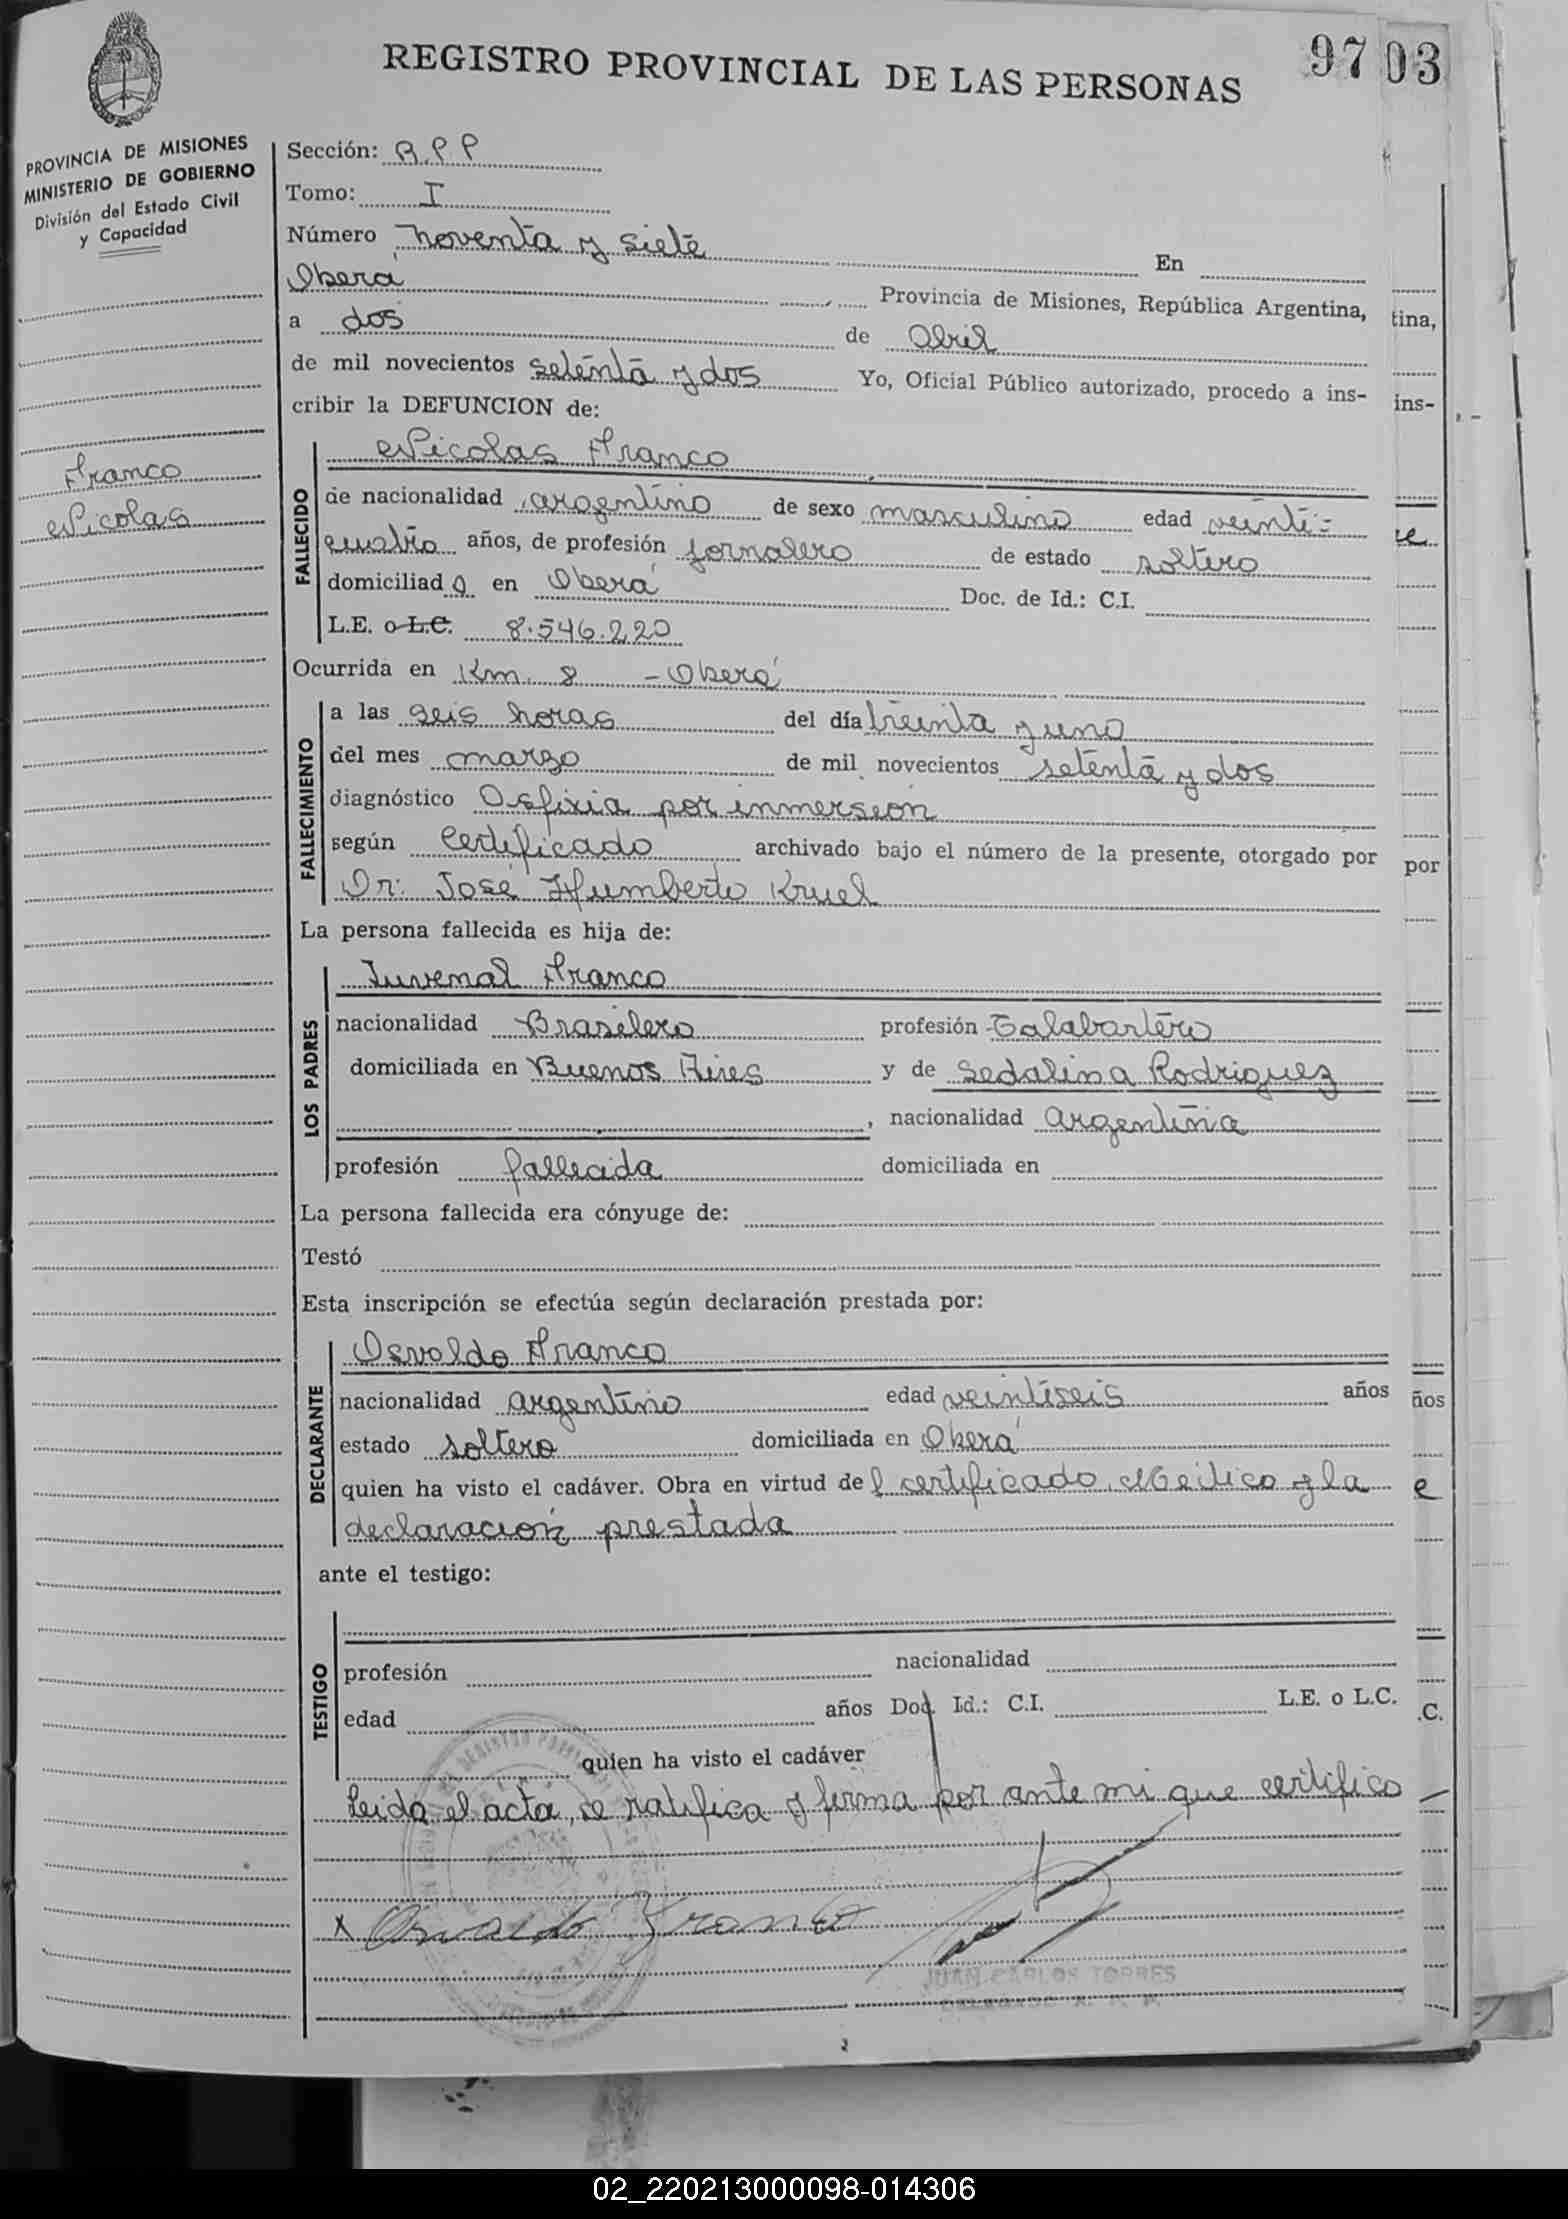 REGISTRO PROVINCIAL DE LAS PERSONAS
97 03
PROVINCIA DE MISIONES
MINISTERIO DE GOBIERNO
División del Estado Civil
y Capacidad
Franco
Nicolas
Sección: R.P.P
Tomo: I
Número noventa y siete En
Oberá Provincia de Misiones, República Argentina,
a dos de Abril
de mil novecientos setenta y dos Yo, Oficial Público autorizado, procedo a ins-
cribir la DEFUNCION de:
FALLECIDO
Nicolas Franco
de nacionalidad argentino de sexo masculino edad veinti-
cuatro años, de profesión jornalero de estado soltero
domiciliado en Oberá Doc. de Id.: C.I.
L.E. o L.C. 8.546.220
Ocurrida en Km. 8 - Oberá
FALLECIMIENTO
a las seis horas del día treinta y uno
del mes marzo de mil novecientos setenta y dos
diagnóstico Asfixia por inmersión
según Certificado archivado bajo el número de la presente, otorgado por
Dr: José Humberto Kruel
La persona fallecida es hija de:
LOS PADRES
Juvenal Franco
nacionalidad Brasilero profesión Talabartero
domiciliada en Buenos Aires y de Sedalina Rodriguez
, nacionalidad argentina
profesión fallecida domiciliada en
La persona fallecida era cónyuge de:
Testó
Esta inscripción se efectúa según declaración prestada por:
DECLARANTE
Osvaldo Franco
nacionalidad argentino edad veintiseis años
estado soltero domiciliada en Oberá
quien ha visto el cadáver. Obra en virtud del certificado Medico y la
declaración prestada
ante el testigo:
TESTIGO
profesión nacionalidad
edad años Doc. Id.: C.I. L.E. o L.C.
quien ha visto el cadáver
Leida el acta, se ratifica y firma por ante mi que certifico
x Osvaldo Franco
JUAN CARLOS TORRES
tina,
ins-
por
ños
e
.C.
02_220213000098-014306